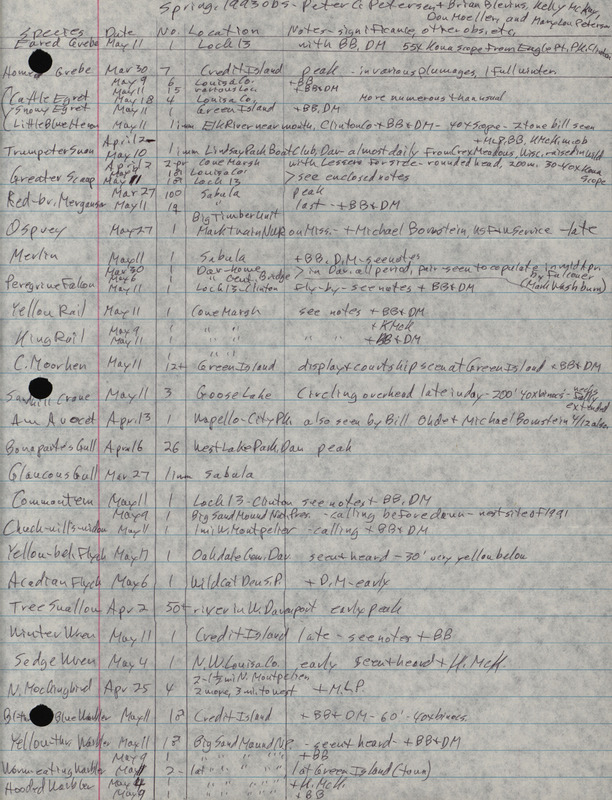 Spring, 1993 OBS - Peter C. Petersen + Brian Blevins, Kelly McKay,
Don Moeller, and Mary Lou Petersen
Species Date No. Location Notes - significance, other obs, etc.
Eared Grebe May 11 1 Lock 13 with BB, DM 55X Kowa scope from Eagle Pt. Pk. Clinton
Horned Grebe Mar 30 7 Credit Island peak - in various plumages, 1 full winter
May 9 6 Louisa Co. + BB
Cattle Egret May 11 15 various loc. + BB + DM
May 18 4 Louisa Co. More numerous than usual
Snowy Egret May 11 1 Green Island + BB, DM
Little Blue Heron May 11 1 imm Elk River near mouth, Clinton Co + BB + DM - 40X scope - 2 tone bill seen
April 2- + MLP, BB, KMcK, m.ob
Trumpeter Swan May 10 1 imm Lindsay Park Boat Club, Dav - almost daily From Crex Meadows, Wisc. raised in wild
April 2 2 pr Cone Marsh with Lessers for side - rounded head, 200m. 30-40X Kowa Scope
Greater Scaup 1♂ Louisa Co.
May 11 1♂ Lock 13 > see enclosed notes
Mar 27 100 Sabula peak
Red-br. Merganser May 11 1♀ last - + BB + DM
Big Timber Unit
Osprey May 27 1 Mark Twain NWR on Miss. - + Michael Bornstein US F+W Service - late
Merlin May 11 1 Sabula + BB, DM - see notes
Mar 30 1 Dav - home > in Dav. all period, pair seen to copulate in mid Apr.
May 6 " Cent. Bridge by Falconer
Peregrine Falcon May 11 1 Lock 13 - Clinton Fly-by - see notes + BB + DM (Mark Washburn)
Yellow Rail May 11 1 Cone Marsh see notes + BB + DM
May 9 1 " " + KMcK
King Rail May 11 1 " " + BB + DM
" "
C. Moorhen May 11 12+ Green Island display + courtship seen at Green Island + BB + DM
Sandhill Crane May 11 3 Goose Lake Circling overhead late in day - 200' 40X binocs - necks extended
Am Avocet April 3 1 Wapello - City Pk. also seen by Bill Ohde + Michael Bornstein 4/12 also
Bonaparte's Gull April 6 26 West Lake Park, Dav peak
Glaucous Gull Mar 27 1 imm Sabula
Common Tern May 11 1 Lock 13 - Clinton see notes + BB, DM
May 9 1 Big Sand Mound Nat. Pres. - calling before dawn - nest site of 1991
Chuck-will's-widow May 11 1 1 mi W. Montpelier - calling + BB + DM
Yellow-bel. Flych May 17 1 Oakdale Cem. Dav seen + heard - 30' very yellow below
Acadian Flych May 6 1 Wildcat Den S.P. + D.M - early
Tree Swallow Apr 2 50+ river in W. Davenport early peak
Winter Wren May 11 1 Credit Island late - see notes + BB
Sedge Wren May 4 1 N.W. Louisa Co. early seen + heard + K. McK
2 - 1.5 mi N. Montpelier
N. Mockingbird Apr 25 4 2 more, 3 mi. to west + M.L.P.
Blue Warbler May 11 1♂ Credit Island + BB + DM - 60' - 40X binocs.
Yellow-thr. Warbler May 11 1♂ Big Sand Mound N.P. - seen + heard - + BB + DM
May 9 1 " " " " + BB
Worm-eating Warbler May 11 2 - 1 at " " " 1 at Green Island (town)
May 4 1 " " " " + K. McK.
Hooded Warbler May 9 1 " " " " + BB